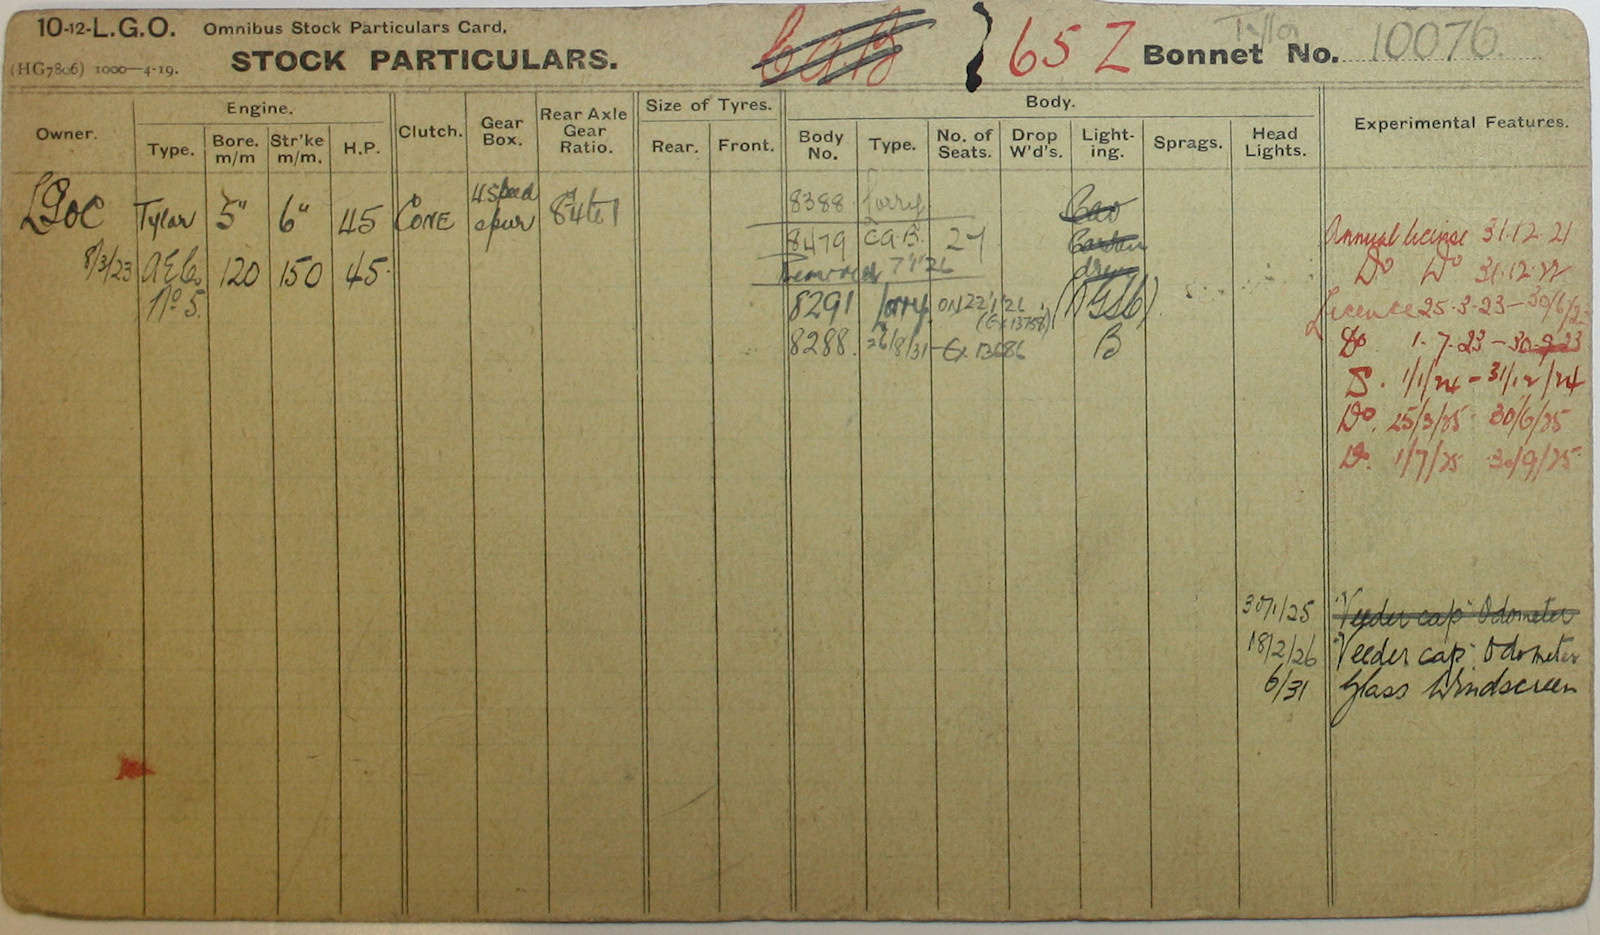 10-12-L.G.O. Omnibus Stock Particulars Card,
(HG7806) 1000—4-19. STOCK PARTICULARS.
65 Z Tylor Bonnet No. 10076.
Owner. Engine. Clutch. Gear Box. Rear Axle Gear Ratio. Size of Tyres. Body. Experimental Features.
Type. Bore. m/m Str'ke m/m. H.P. Rear. Front. Body No. Type. No. of Seats. Drop W'd's. Light-ing. Sprags. Head Lights.
LGOC Tylor 5" 6" 45 CONE 4 Speed spur 8¼ to 1 8388 Lorry
8479 CAB. 24
8/3/23 AEC. 120 150 45. Removed 7'1'26
No 5. 8291 Lorry. ON 22/1/26 (Ex 13758)
8288. 26/8/31 - Ex. 13686 B
Annual license 31.12.21
Do Do 31.12.22
Licence 25.3.23 - 30/6/23
Do. 1.7.23 - 30.9.23
D. 1/1/24 - 31/12/24
Do. 25/3/25 30/6/25
D. 1/7/25 30/9/25
30/1/25 "Veeder cap" Odometer
18/2/26 "Veeder cap" Odometer
6/31 Glass Windscreen